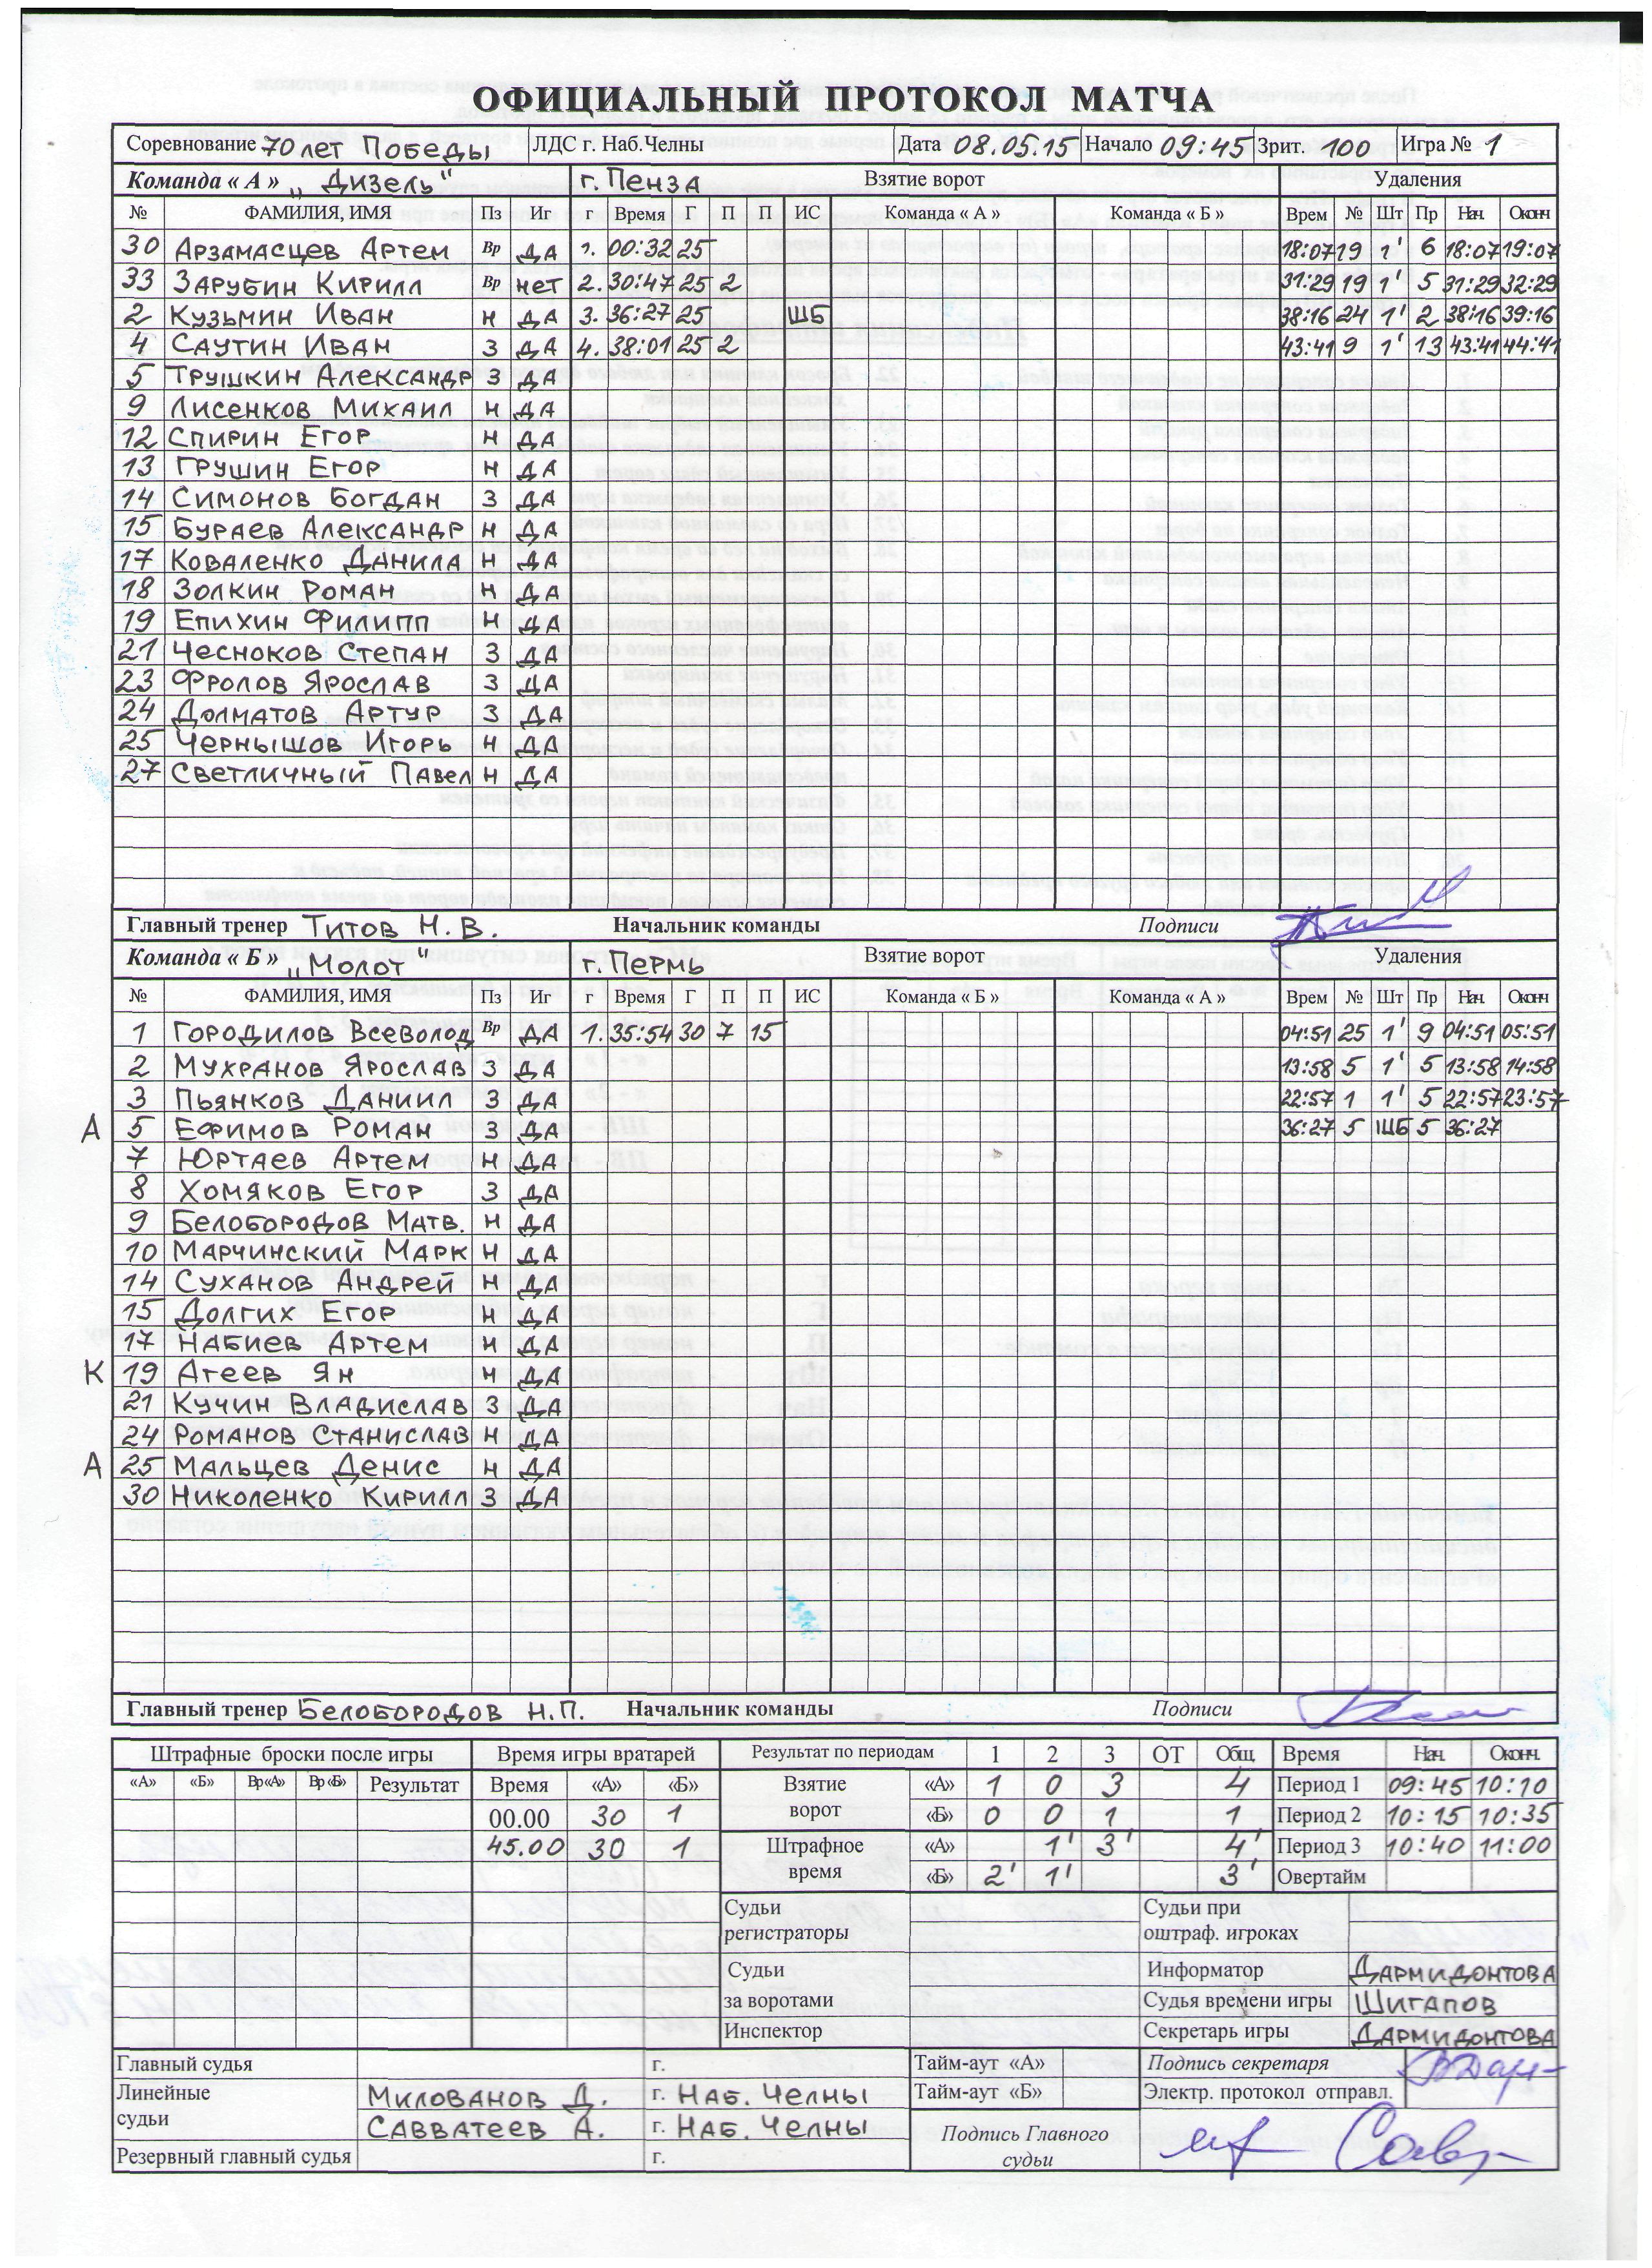 ОФИЦИАЛЬНЫЙ ПРОТОКОЛ МАТЧА
Соревнование 70 лет Победы ЛДС г. Наб.Челны Дата 08.05.15 Начало 09:45 Зрит. 100 Игра № 1
Команда « А » „ Дизель " г. Пенза Взятие ворот Удаления
№ ФАМИЛИЯ, ИМЯ Пз Иг г Время Г П П ИС Команда « А » Команда « Б » Врем № Шт Пр Нач. Оконч
30 Арзамасцев Артем Вр ДА 1. 00:32 25 18:07 19 1' 6 18:07 19:07
33 Зарубин Кирилл Вр нет 2. 30:47 25 2 31:29 19 1' 5 31:29 32:29
2 Кузьмин Иван Н ДА 3. 36:27 25 ШБ 38:16 24 1' 2 38:16 39:16
4 Саутин Иван З ДА 4. 38:01 25 2 43:41 9 1' 13 43:41 44:41
5 Трушкин Александр З ДА
9 Лисенков Михаил Н ДА
12 Спирин Егор Н ДА
13 Грушин Егор Н ДА
14 Симонов Богдан З ДА
15 Бураев Александр Н ДА
17 Коваленко Данила Н ДА
18 Золкин Роман Н ДА
19 Епихин Филипп Н ДА
21 Чесноков Степан З ДА
23 Фролов Ярослав З ДА
24 Долматов Артур З ДА
25 Чернышов Игорь Н ДА
27 Светличный Павел Н ДА
Главный тренер Титов Н.В. Начальник команды Подписи
Команда « Б » „Молот" г. Пермь Взятие ворот Удаления
№ ФАМИЛИЯ, ИМЯ Пз Иг г Время Г П П ИС Команда « Б » Команда « А » Врем № Шт Пр Нач. Оконч
1 Городилов Всеволод Вр ДА 1. 35:54 30 7 15 04:51 25 1' 9 04:51 05:51
2 Мухранов Ярослав З ДА 13:58 5 1' 5 13:58 14:58
3 Пьянков Даниил З ДА 22:57 1 1' 5 22:57 23:57
А 5 Ефимов Роман З ДА 36:27 5 ШБ 5 36:27
7 Юртаев Артем Н ДА
8 Хомяков Егор З ДА
9 Белобородов Матв. Н ДА
10 Марчинский Марк Н ДА
14 Суханов Андрей Н ДА
15 Долгих Егор Н ДА
17 Набиев Артем Н ДА
К 19 Агеев Ян Н ДА
21 Кучин Владислав З ДА
24 Романов Станислав Н ДА
А 25 Мальцев Денис Н ДА
30 Николенко Кирилл З ДА
Главный тренер Белобородов Н.П. Начальник команды Подписи
Штрафные броски после игры Время игры вратарей Результат по периодам 1 2 3 ОТ Общ. Время Нач. Оконч.
«А» «Б» Вр«А» Вр«Б» Результат Время «А» «Б» Взятие ворот «А» 1 0 3 4 Период 1 09:45 10:10
00.00 30 1 «Б» 0 0 1 1 Период 2 10:15 10:35
45.00 30 1 Штрафное время «А» 1' 3' 4' Период 3 10:40 11:00
«Б» 2' 1' 3' Овертайм
Судьи регистраторы Судьи при оштраф. игроках
Судьи Информатор Дармидонтова
за воротами Судья времени игры Шигапов
Инспектор Секретарь игры Дармидонтова
Главный судья г. Тайм-аут «А» Подпись секретаря
Линейные судьи Милованов Д. г. Наб. Челны Тайм-аут «Б» Электр. протокол отправл.
Савватеев А. г. Наб. Челны Подпись Главного судьи
Резервный главный судья г.